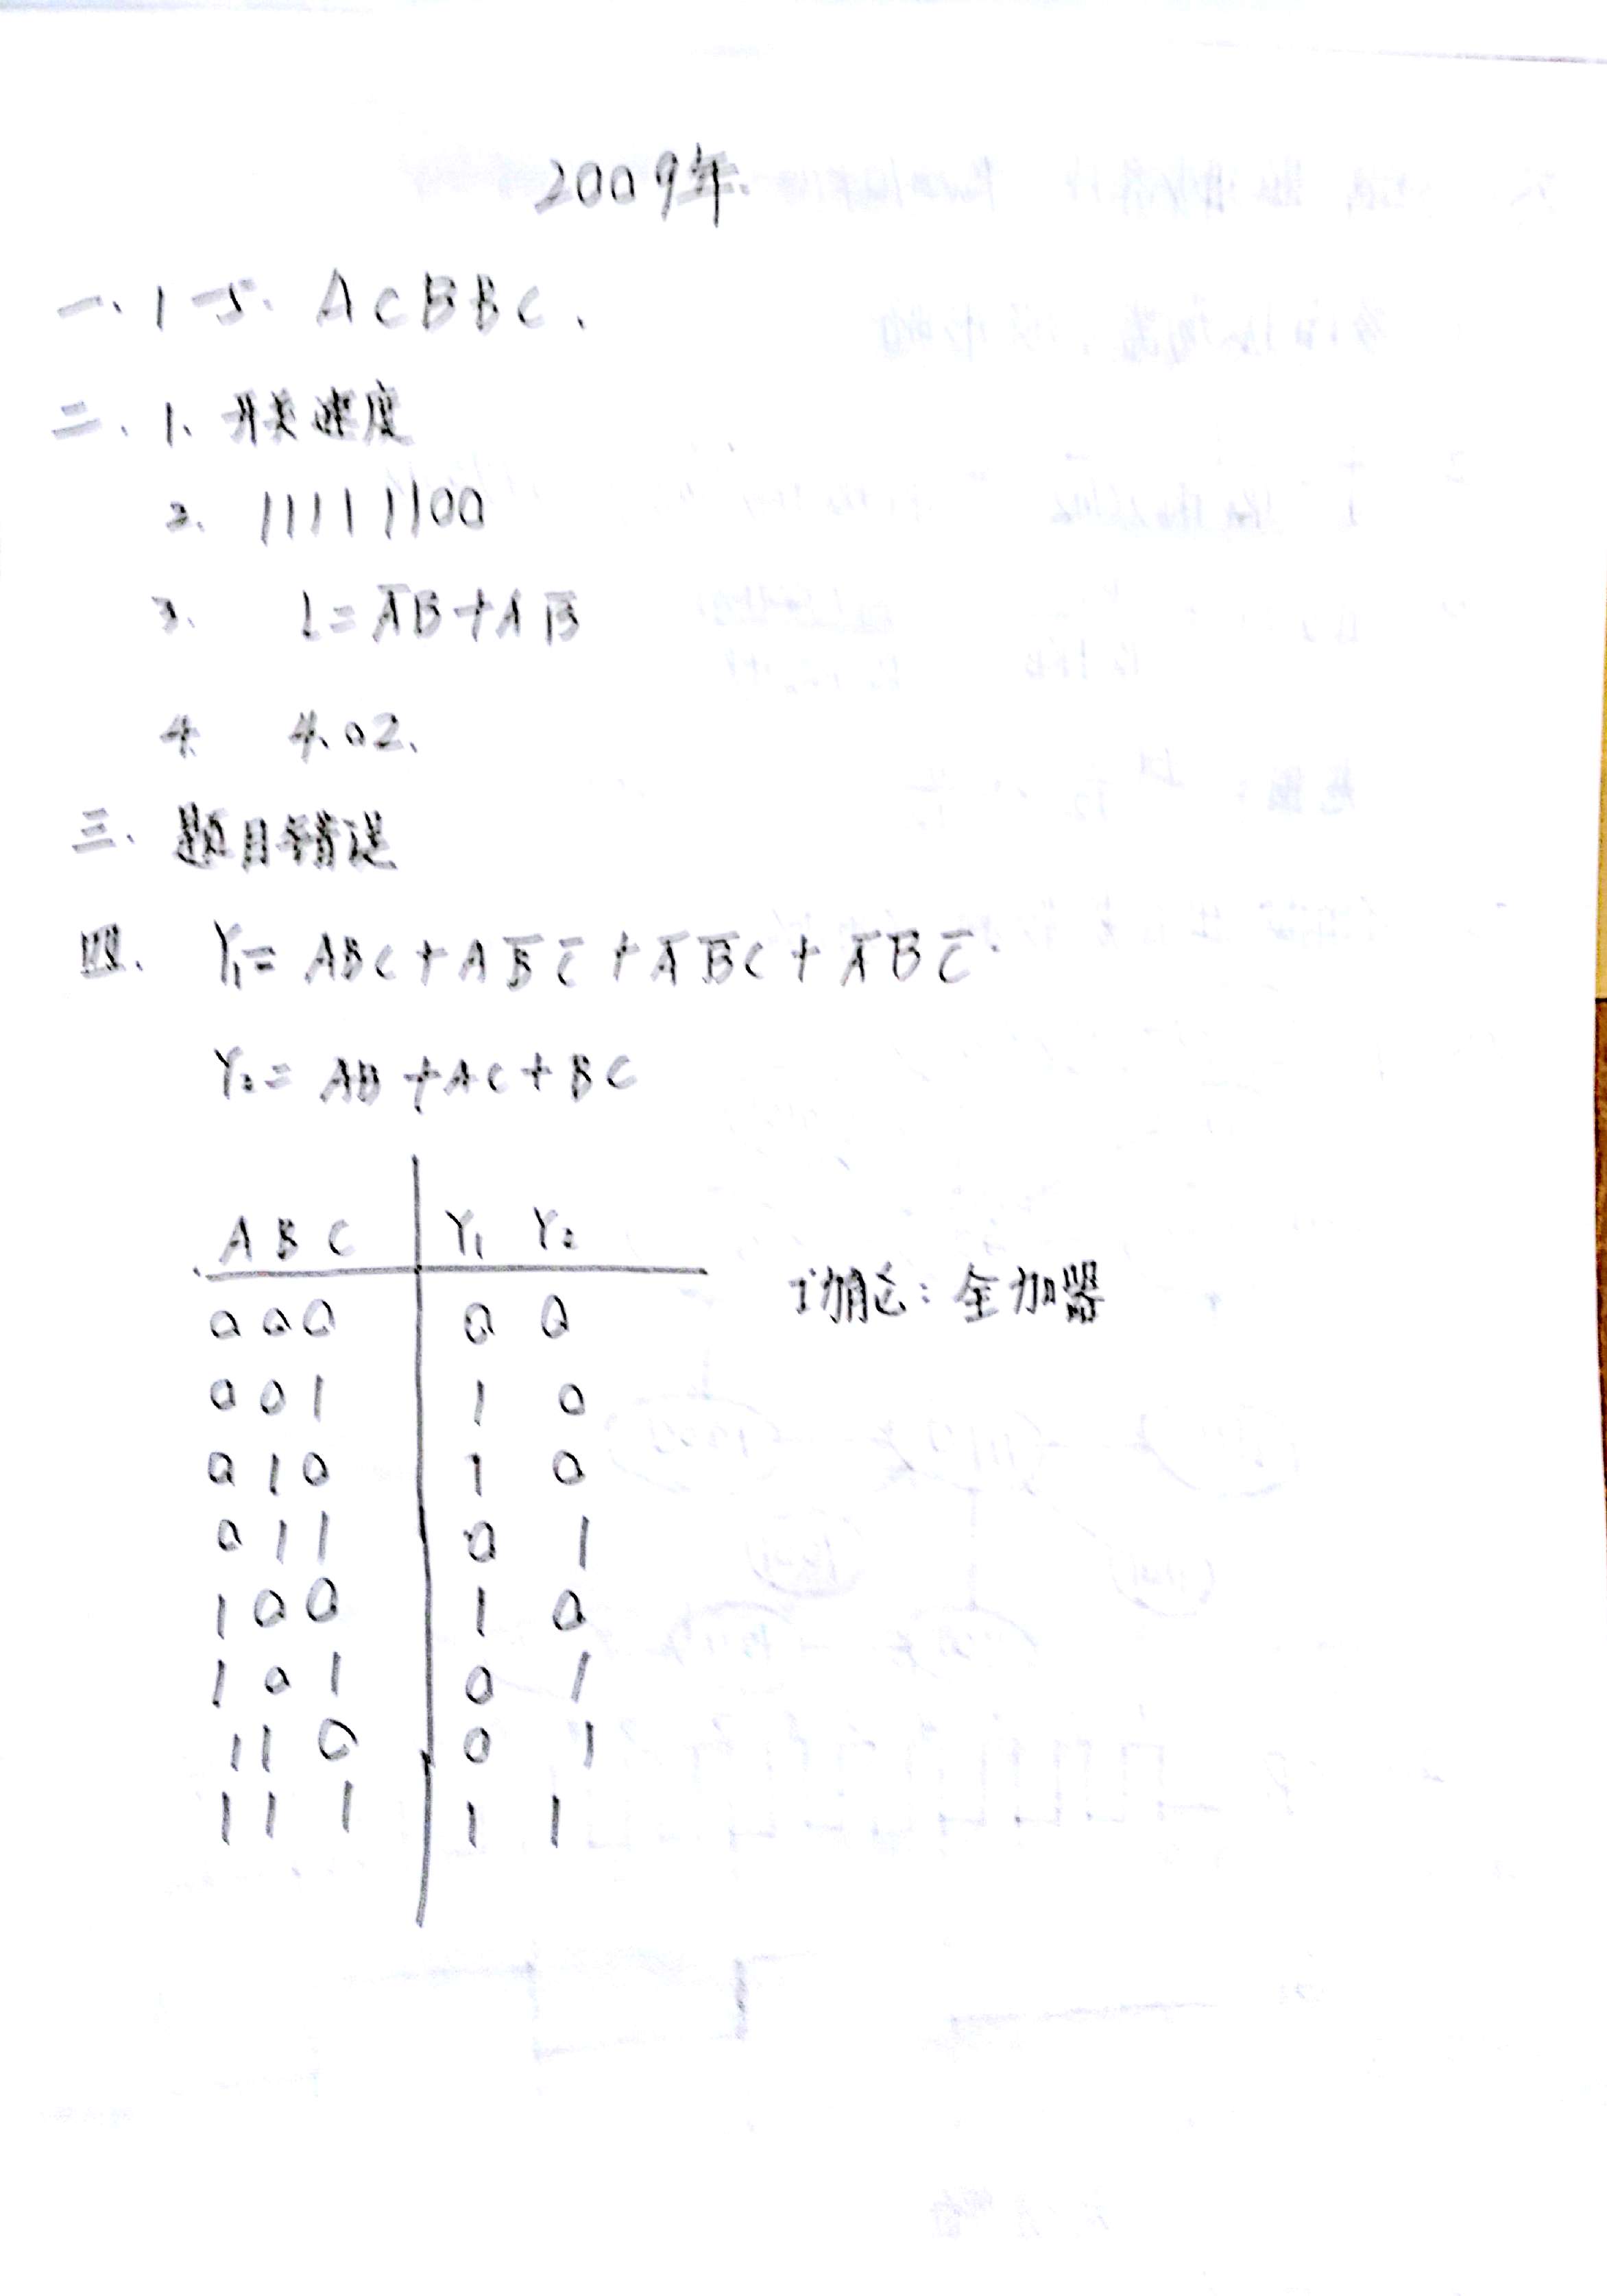 2009年.
一、1-5. ACBBC.
二、1、开关速度
2. 11111100
3. L=A̅B+AB̅
4. 4.02.
三、题目错误
四. Y₁= ABC+AB̅C̅+A̅B̅C+A̅BC̅.
Y₂= AB+AC+BC
A B C Y₁ Y₂
0 0 0 0 0
功能:全加器
0 0 1 1 0
0 1 0 1 0
0 1 1 0 1
1 0 0 1 0
1 0 1 0 1
1 1 0 0 1
1 1 1 1 1